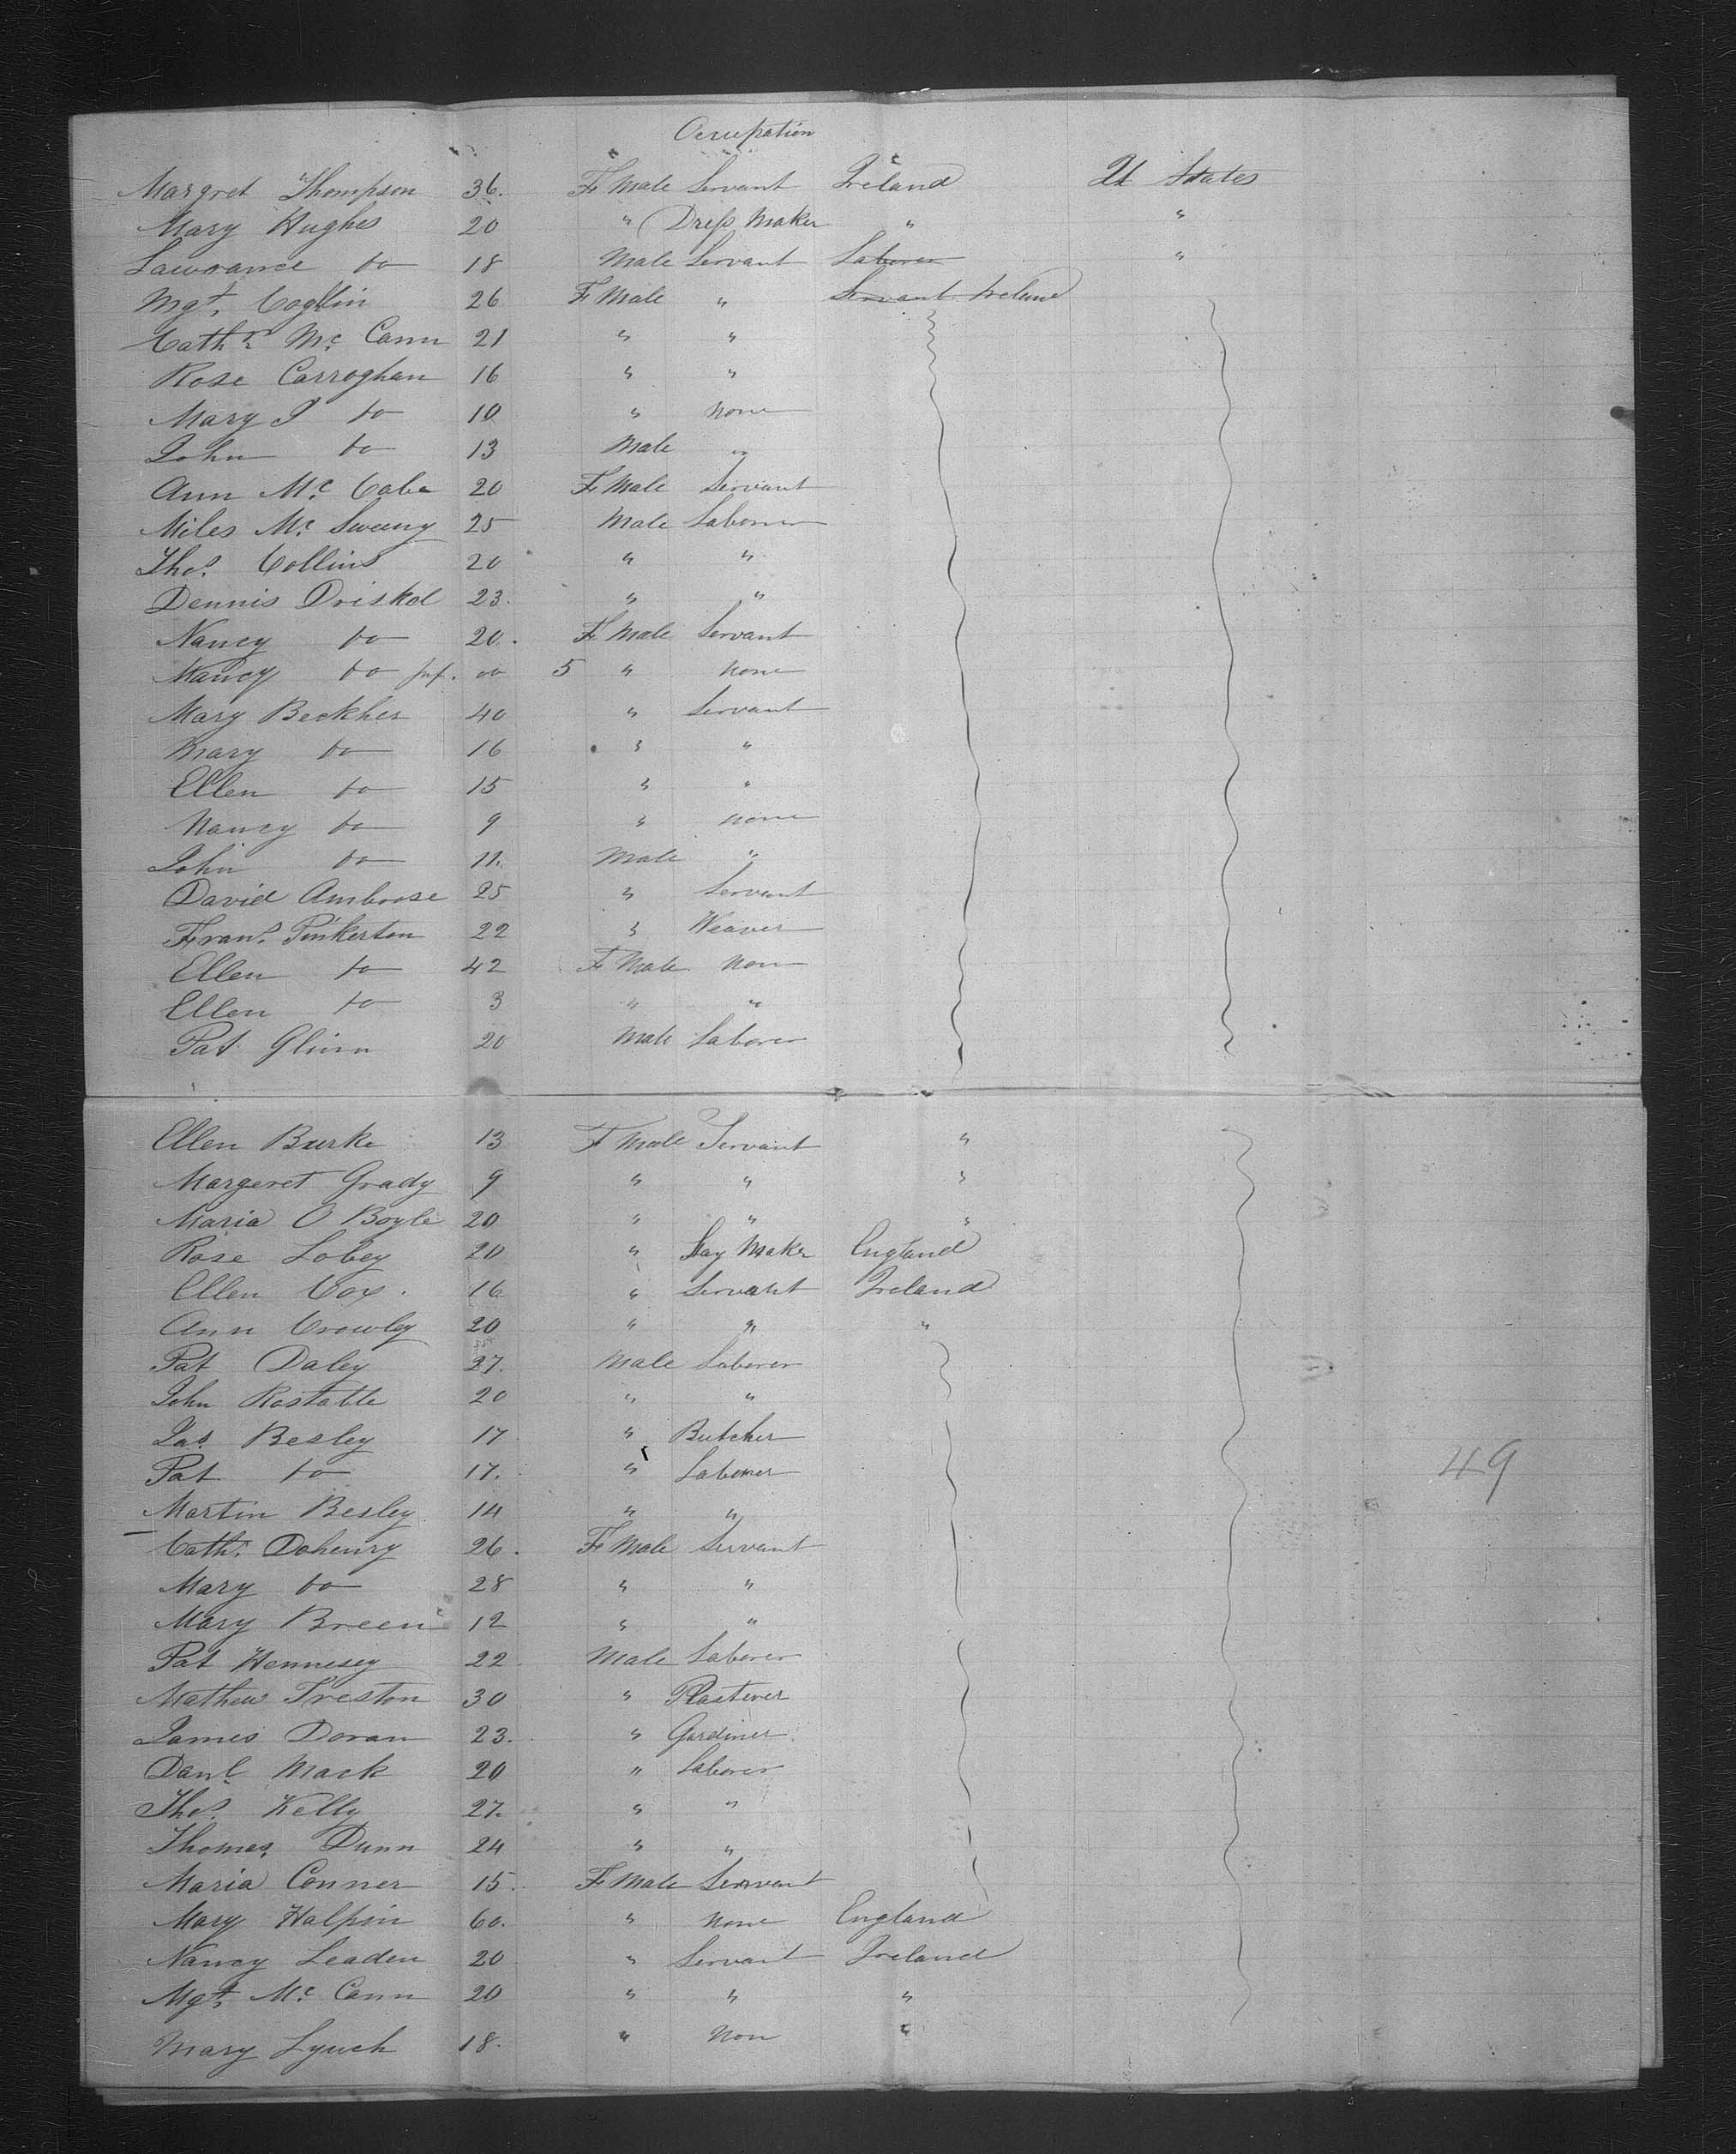 Occupation
Margret Thompson 36. F Male Servant Ireland Ut States
Mary Hughes 20 " Dress Maker " "
Lawrance do 18 Male Servant Laborer "
Mgt. Coglin 26 F Male " Servant Ireland
Cathn. Mc. Cann 21 " "
Rose Carroghan 16 " "
Mary J do 10 " none
John do 13 Male "
Ann Mc. Cabe 20 F Male Servant
Miles Mc. Sweeny 25 Male Laborer
Thos. Collins 20 " "
Dennis Driskol 23. " "
Nancy do 20. F Male Servant
Nancy do inf. oo 5 " none
Mary Beckher 40 " Servant
Mary do 16 " "
Ellen do 15 " "
Nancy do 9 " none
John do 11. Male "
David Ambrose 25 " Servant
Frans. Pinkerton 22 " Weaver
Ellen do 42 F Male Non
Ellen do 3 " "
Pat Glinn 20 Male Laborer
Ellen Burke 13 F Male Servant "
Margeret Grady 9 " " "
Maria O Boyle 20 " " "
Rose Lobey 20 " Stay Maker England
Ellen Cox. 16 " Servant Ireland
Ann Crowley 20 " " "
Pat Daley 27. Male Laborer
John Rostatte 20 " "
Jas. Besley 17 " Butcher
Pat do 17. " Laborer
49
Martin Besley 14 " "
Cath. Dohenry 26. F Male Servant
Mary do 28 " "
Mary Breen 12 " "
Pat Hennesey 22 Male Laborer
Mathew Treston 30 " Plasterer
James Doran 23. " Gardiner
Danl. Mack 20 " Laborer
Thos. Kelly 27. " "
Thomas Dunn 24 " "
Maria Conner 15. F Male Servant
Mary Halpin 60. " None England
Nancy Leaden 20 " Servant Ireland
Mgt. Mc. Cann 20 " " "
Mary Lynch 18. " Non "